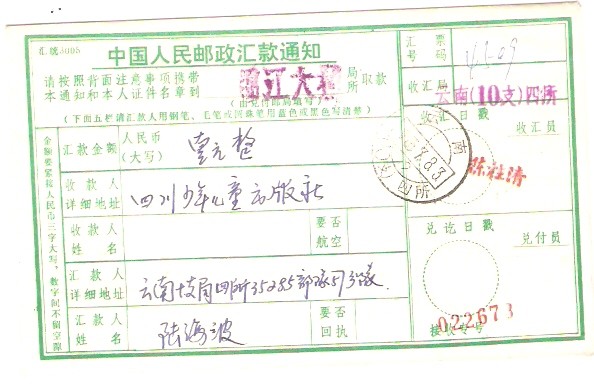 汇统5005
中国人民邮政汇款通知
请按照背面注意事项携带
本通知和本人证件名章到
局
所
取款
(由兑付邮局填写)
(下面五栏请汇款人用钢笔、毛笔或圆珠笔用蓝色或黑色写清楚)
金额要紧接人民币三字大写，数字间不留空隙
汇款金额
人民币
(大写)
壹元整
收款人
详细地址
四川少年儿童出版社
收款人
姓名
要否
航空
汇款人
详细地址
汇款人
姓名
陆海波
要否
回执
汇票
号码
收汇局
云南(10支)四所
收汇日戳
收汇员
兑讫日戳
兑付员
接收号
022673